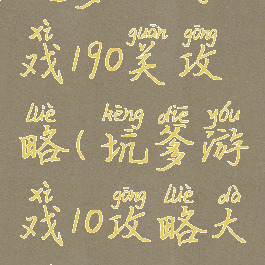 xì guān gōng
戏190关攻
lüè kēng diē yóu
略(坑爹游
xì gōng lüè dà
戏10攻略大